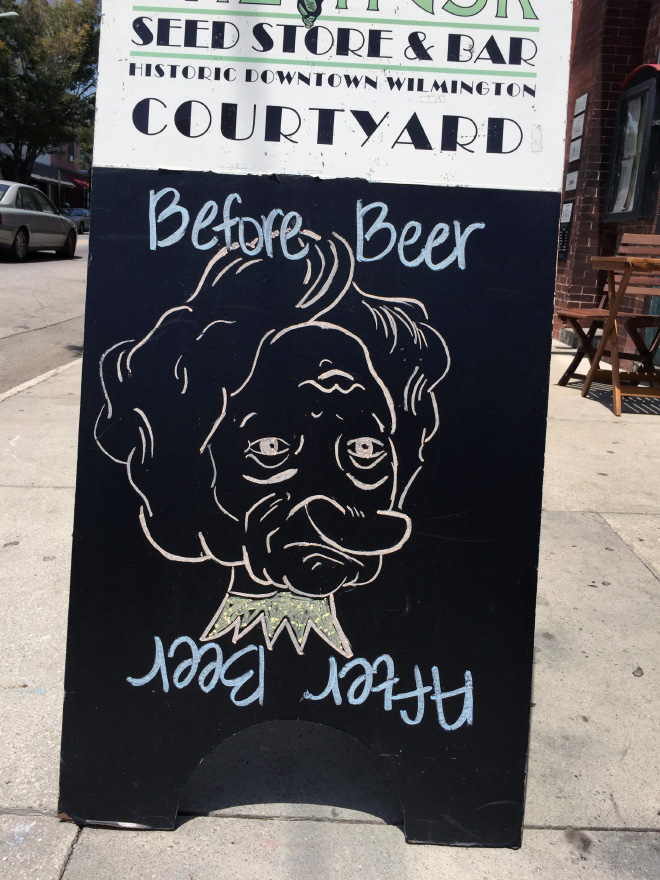 SEED STORE & BAR
HISTORIC DOWNTOWN WILMINGTON
COURTYARD
Before Beer
After Beer